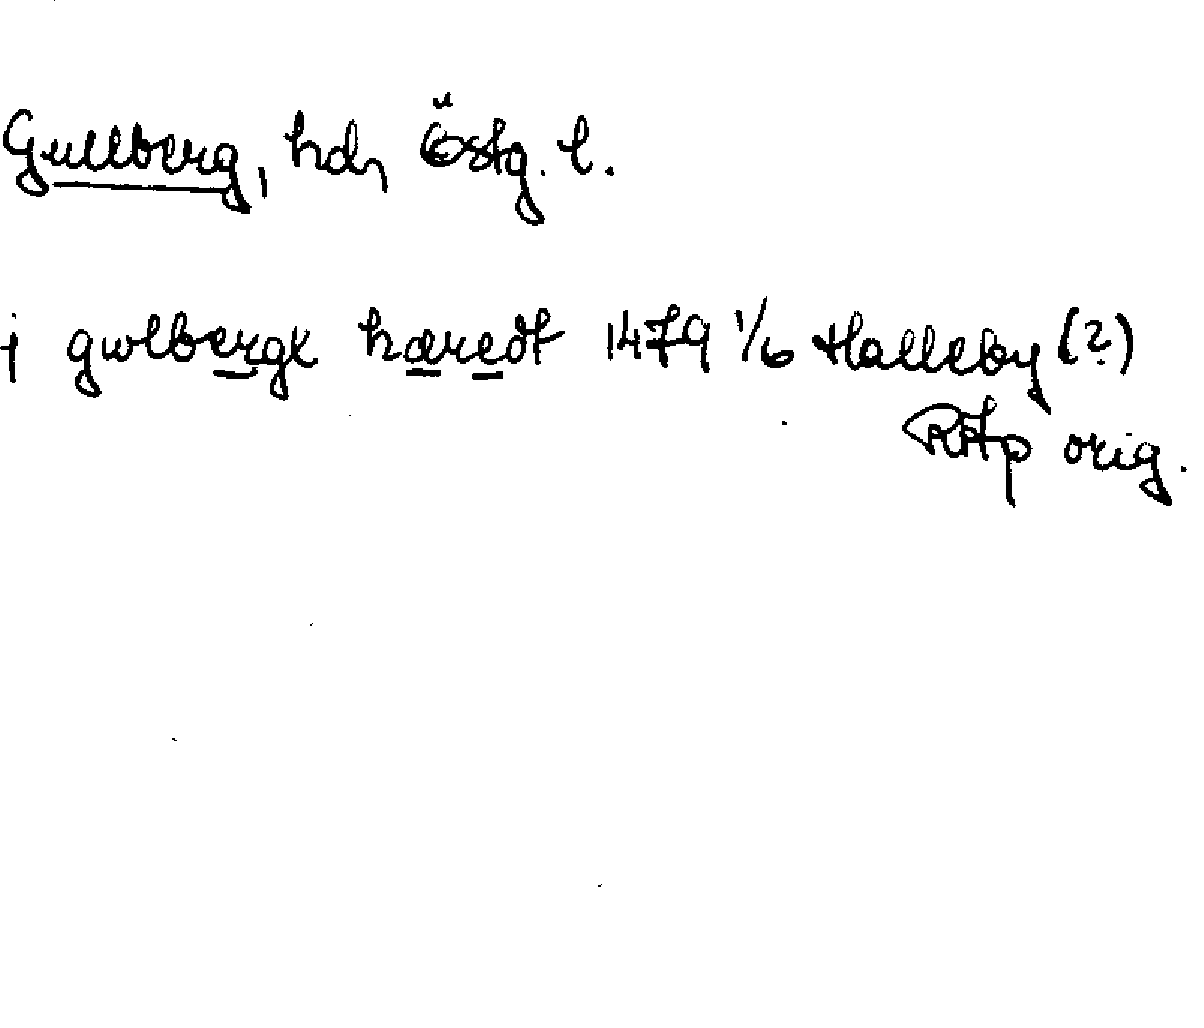 Gullberg, hd, Östg. l.
j gwlbergx hæredt 1479 1/6 Halleby (?)
RAp orig.